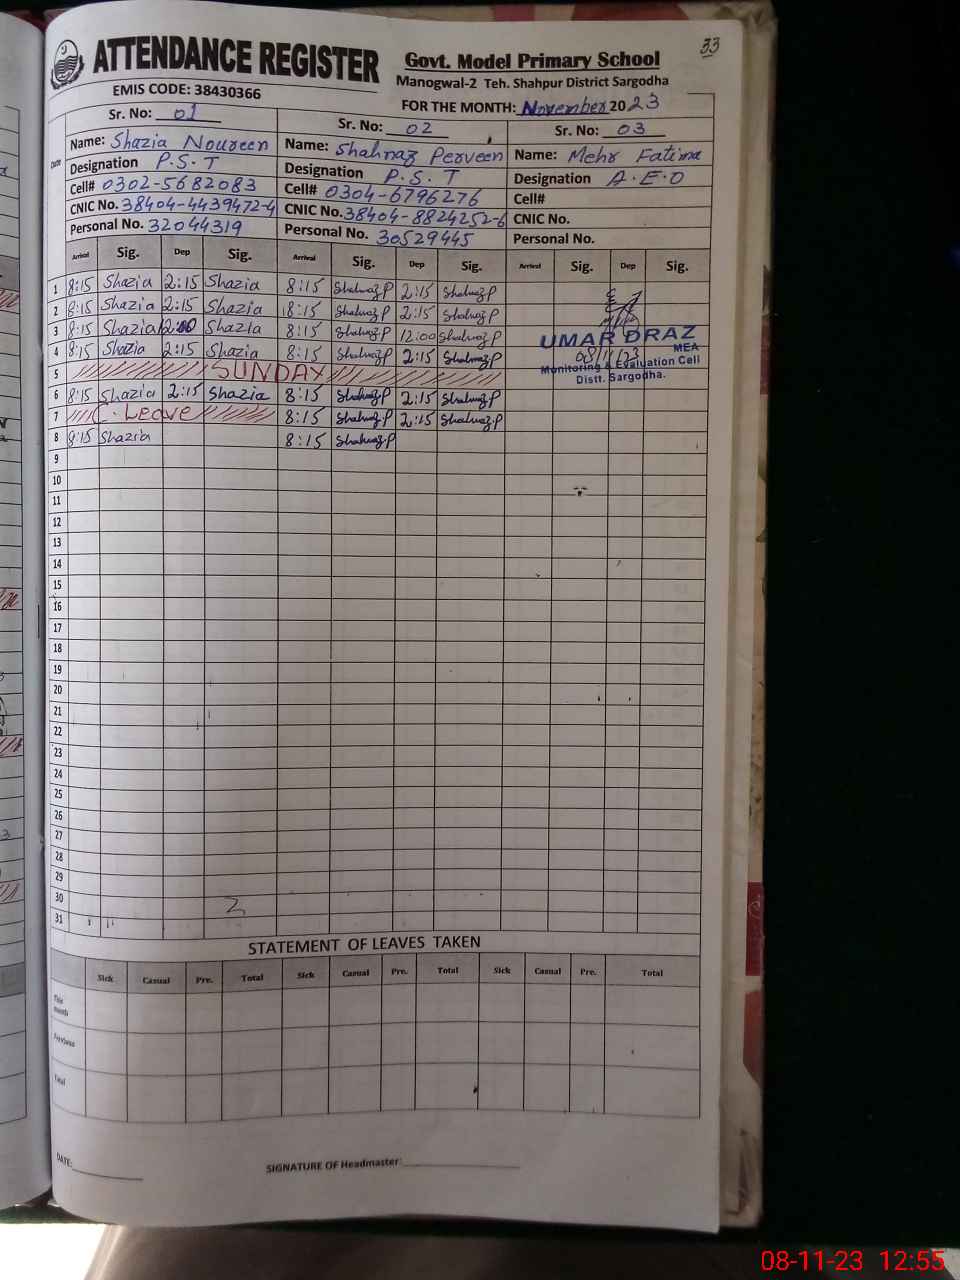 33
ATTENDANCE REGISTER
Govt. Model Primary School
Manogwal-2 Teh. Shahpur District Sargodha
EMIS CODE: 38430366
FOR THE MONTH: November 2023
Sr. No: 01 Sr. No: 02 Sr. No: 03
Date
Name: Shazia Noureen Name: Shahnaz Perveen Name: Mehr Fatima
Designation P.S.T Designation P.S.T Designation A.E.O
Cell# 0302-5682083 Cell# 0304-6796276 Cell#
CNIC No. 38404-4439472-4 CNIC No. 38404-8824252-6 CNIC No.
Personal No. 32044319 Personal No. 30529445 Personal No.
Arrival Sig. Dep Sig. Arrival Sig. Dep Sig. Arrival Sig. Dep Sig.
1 8:15 Shazia 2:15 Shazia 8:15 Shahnaz P 2:15 Shahnaz P
2 8:15 Shazia 2:15 Shazia 8:15 Shahnaz P 2:15 Shahnaz P
3 8:15 Shazia 12:00 Shazia 8:15 Shahnaz P 12:00 Shahnaz P
4 8:15 Shazia 2:15 Shazia 8:15 Shahnaz P 2:15 Shahnaz P
UMAR DRAZ
MEA
08/11/23
Monitoring & Evaluation Cell
Distt. Sargodha.
5 SUNDAY
6 8:15 Shazia 2:15 Shazia 8:15 Shahnaz P 2:15 Shahnaz P
7 C. LEAVE 8:15 Shahnaz P 2:15 Shahnaz P
8 8:15 Shazia 8:15 Shahnaz P
9
10
11
12
13
14
15
16
17
18
19
20
21
22
23
24
25
26
27
28
29
30
31
STATEMENT OF LEAVES TAKEN
Sick Casual Pre. Total Sick Casual Pre. Total Sick Casual Pre. Total
This month
Previous
Total
DATE:
SIGNATURE OF Headmaster:
08-11-23 12:55